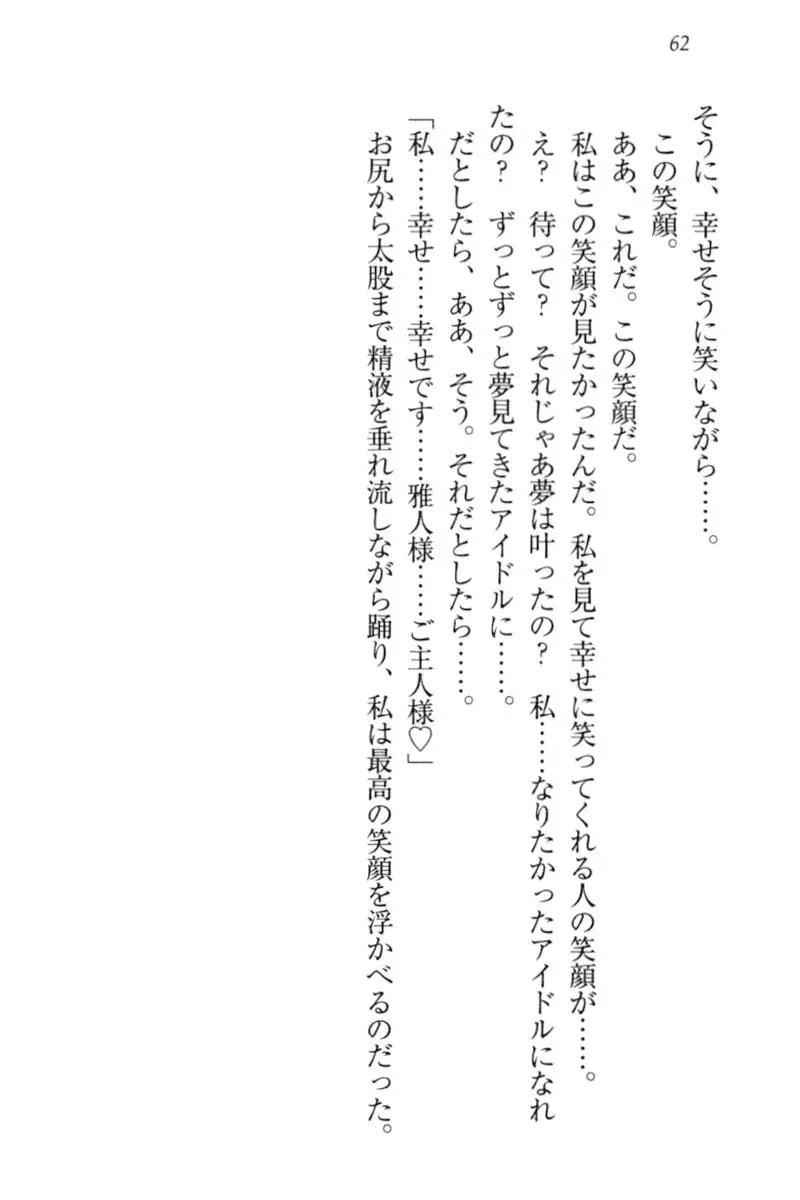 62
そうに、幸せそうに笑いながら……。
この笑顔。
ああ、これだ。この笑顔だ。
私はこの笑顔が見たかったんだ。私を見て幸せに笑ってくれる人の笑顔が……。
え？　待って？　それじゃあ夢は叶ったの？　私……なりたかったアイドルになれ
たの？　ずっとずっと夢見てきたアイドルに……。
だとしたら、ああ、そう。それだとしたら……。
「私……幸せ……幸せです……雅人様……ご主人様♡」
お尻から太股まで精液を垂れ流しながら踊り、私は最高の笑顔を浮かべるのだった。